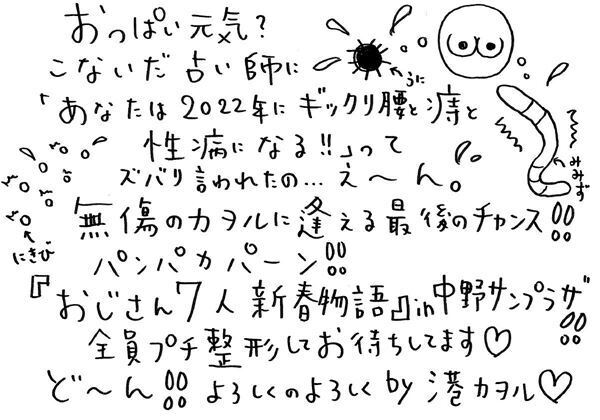 おっぱい元気？
こないだ占い師に
うに
「あなたは2022年にギックリ腰と痔と
性病になる!!」って
ズバリ言われたの…え〜ん。
みみず
無傷のカヲルに逢える最後のチャンス!!
にきび
パンパカパーン!!
『おじさん7人新春物語』in中野サンプラザ!!
全員プチ整形してお待ちしてます♡
ど〜ん!! よろしくのよろしく by 港カヲル♡